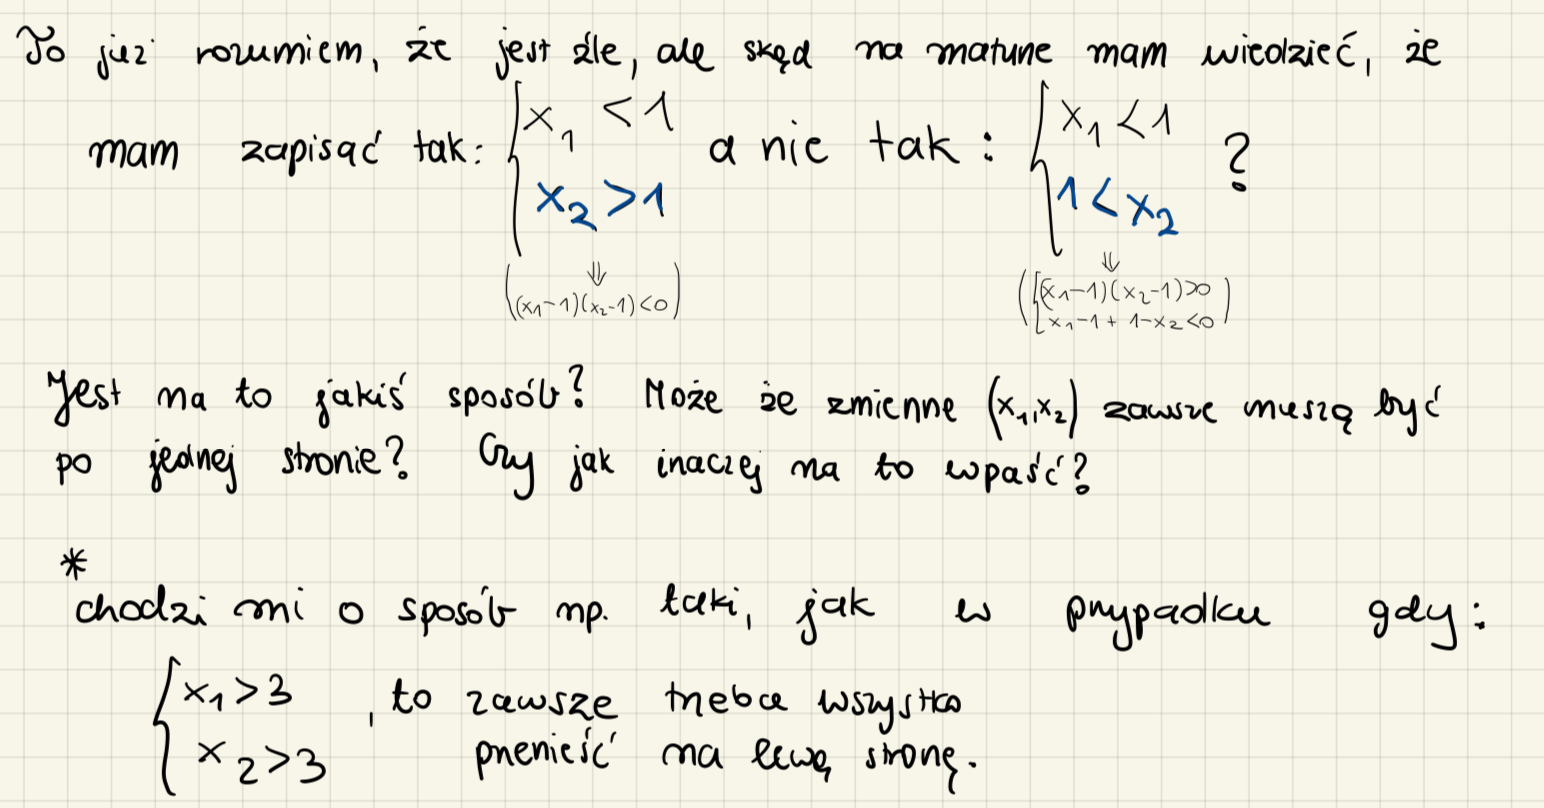 To już rozumiem, że jest źle, ale skąd na maturze mam wiedzieć, że
mam zapisać tak: { x₁ < 1 a nie tak: { x₁ < 1 ?
x₂ > 1 1 < x₂
⇓ ⇓
((x₁-1)(x₂-1)<0) ({(x₁-1)(x₂-1)>0
x₁-1 + 1-x₂ <0)
Jest na to jakiś sposób? Może że zmienne (x₁,x₂) zawsze muszą być
po jednej stronie? Czy jak inaczej na to wpaść?
*
chodzi mi o sposób np. taki, jak w przypadku gdy:
{ x₁ > 3 , to zawsze trzeba wszystko
x₂ > 3 przenieść na lewą stronę.